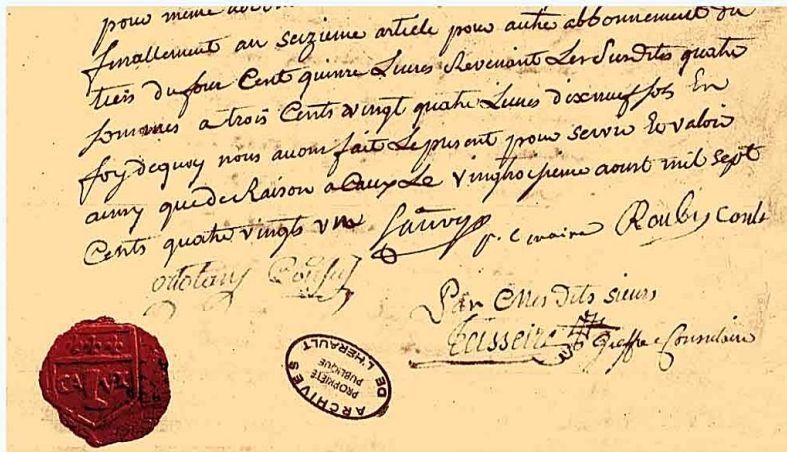 pour meme
finallement au seizieme article pour autre abbonnement du
tiers du four Cent quinze Livres Revenant Les Susdites quatre
sommes a trois Cents vingt quatre Livres dixneuf sols En
foy dequoy nous avons fait Le present pour servir Et valoir
ainsy que de Raison a Caux Le vingt aoust mil sept
Cents quatre vingts un
p. c maire Roub consul
Par Mes dits sieurs
Teisseire Greffe Consulaire
CAUX
ARCHIVES DE L'HERAULT
PROPRIÉTÉ
PUBLIQUE